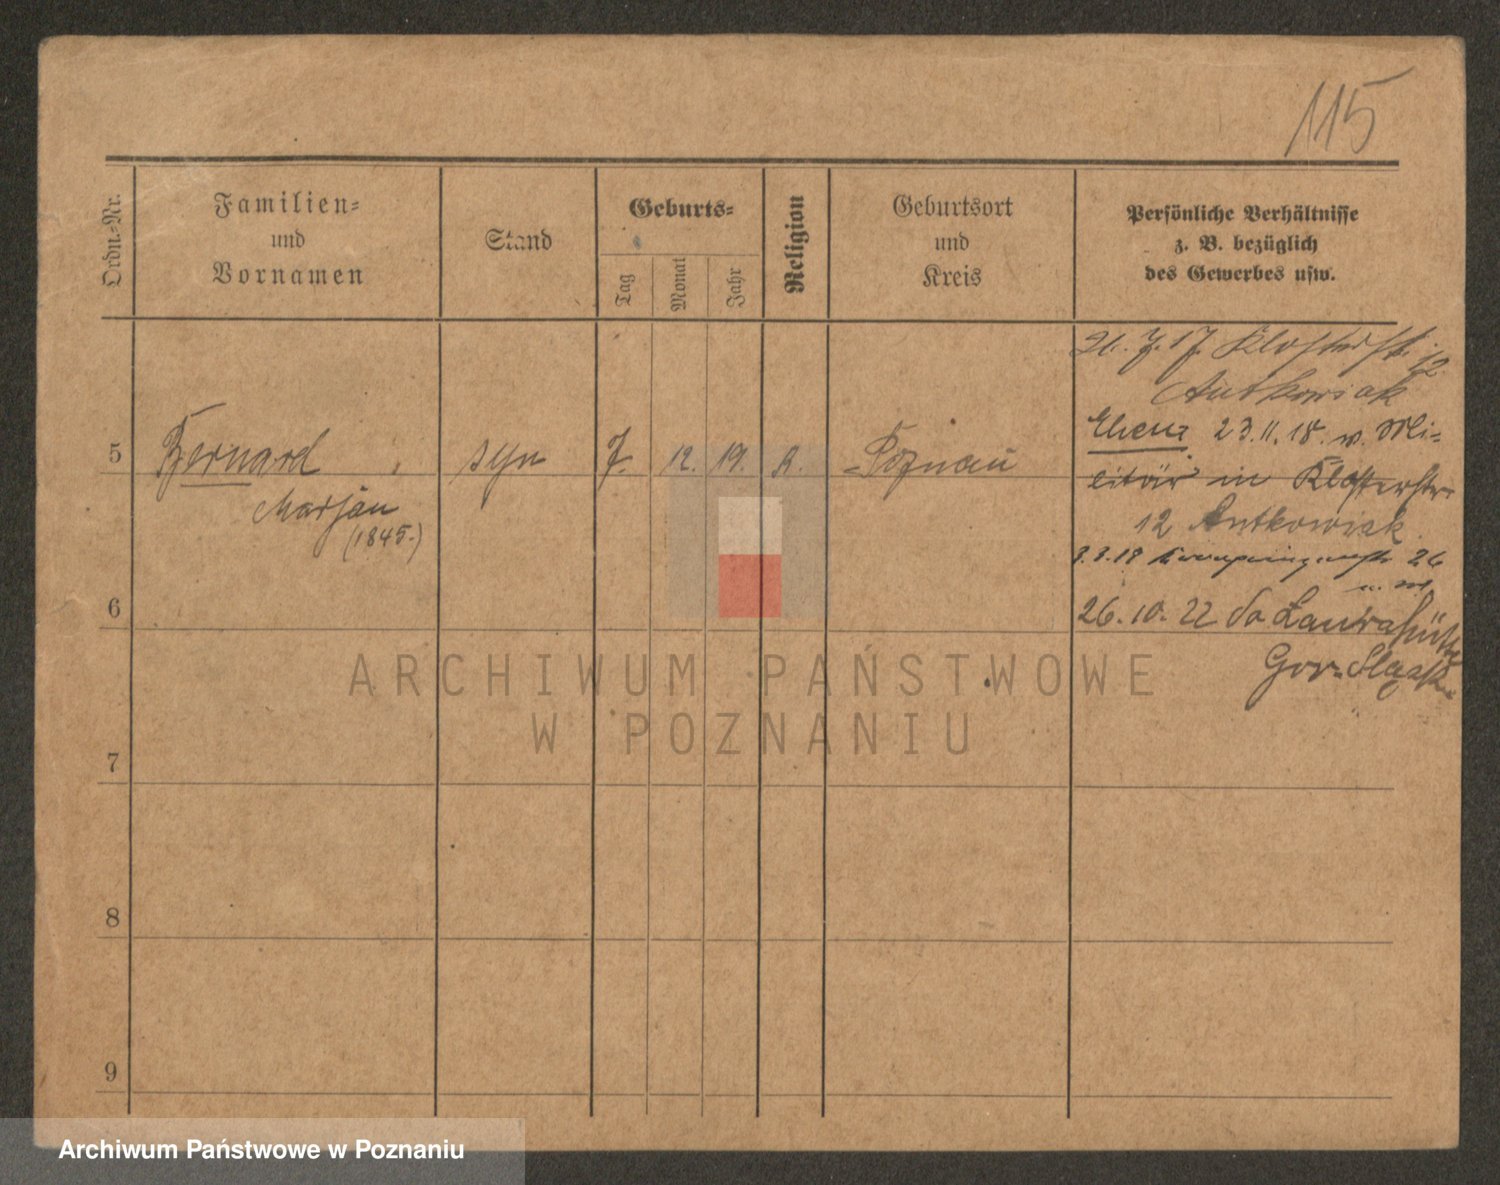 115
Ordn.-Nr.
Familien-
und
Vornamen
Stand
Geburts-
Tag
Monat
Jahr
Religion
Geburtsort
und
Kreis
Persönliche Verhältnisse
z. B. bezüglich
des Gewerbes usw.
5
Bernard
Marjan
(1845.)
syn
7.
12.
19.
k.
Poznań
26. 7. 17. Klosterstr. 12.
Antkowiak
23.11.18. v. Mi-
litär in Klosterstr.
12 Antkowiak
26
26.10.22 do Laurahütte
Gór. Śląsk
6
7
8
9
ARCHIWUM PAŃSTWOWE
W POZNANIU
Archiwum Państwowe w Poznaniu